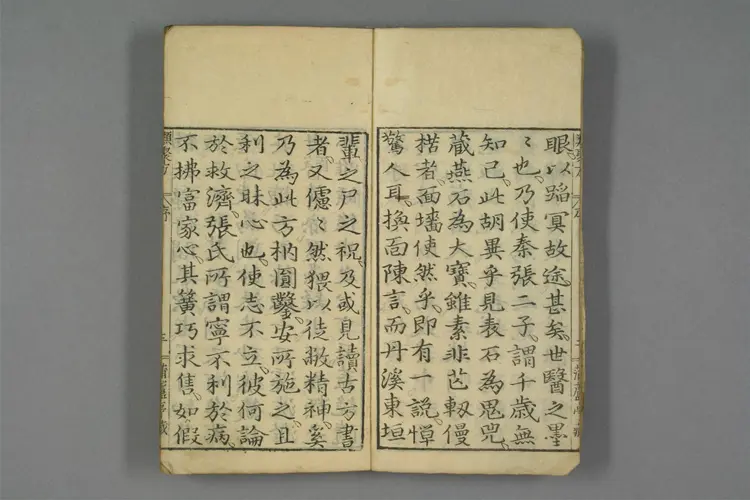 眼以蹈冥故途甚矣世醫之墨
〻也乃使秦張二子謂千歲無
知己此胡異乎見石為
藏燕石為大寶雖素非芒軔僈
楛者面墻使然乎即有一說憚
驚人耳換面陳言而丹溪東垣
輩之尸之祝及或見讀古方書
者又儦〻然猥以徒敝精神奚
乃為此方枘圓鑿安所施之且
利之昧心也使志不立彼何論
於救濟張氏所謂寧不利於病
不拂富家心其簧巧求售如假
類聚方 序